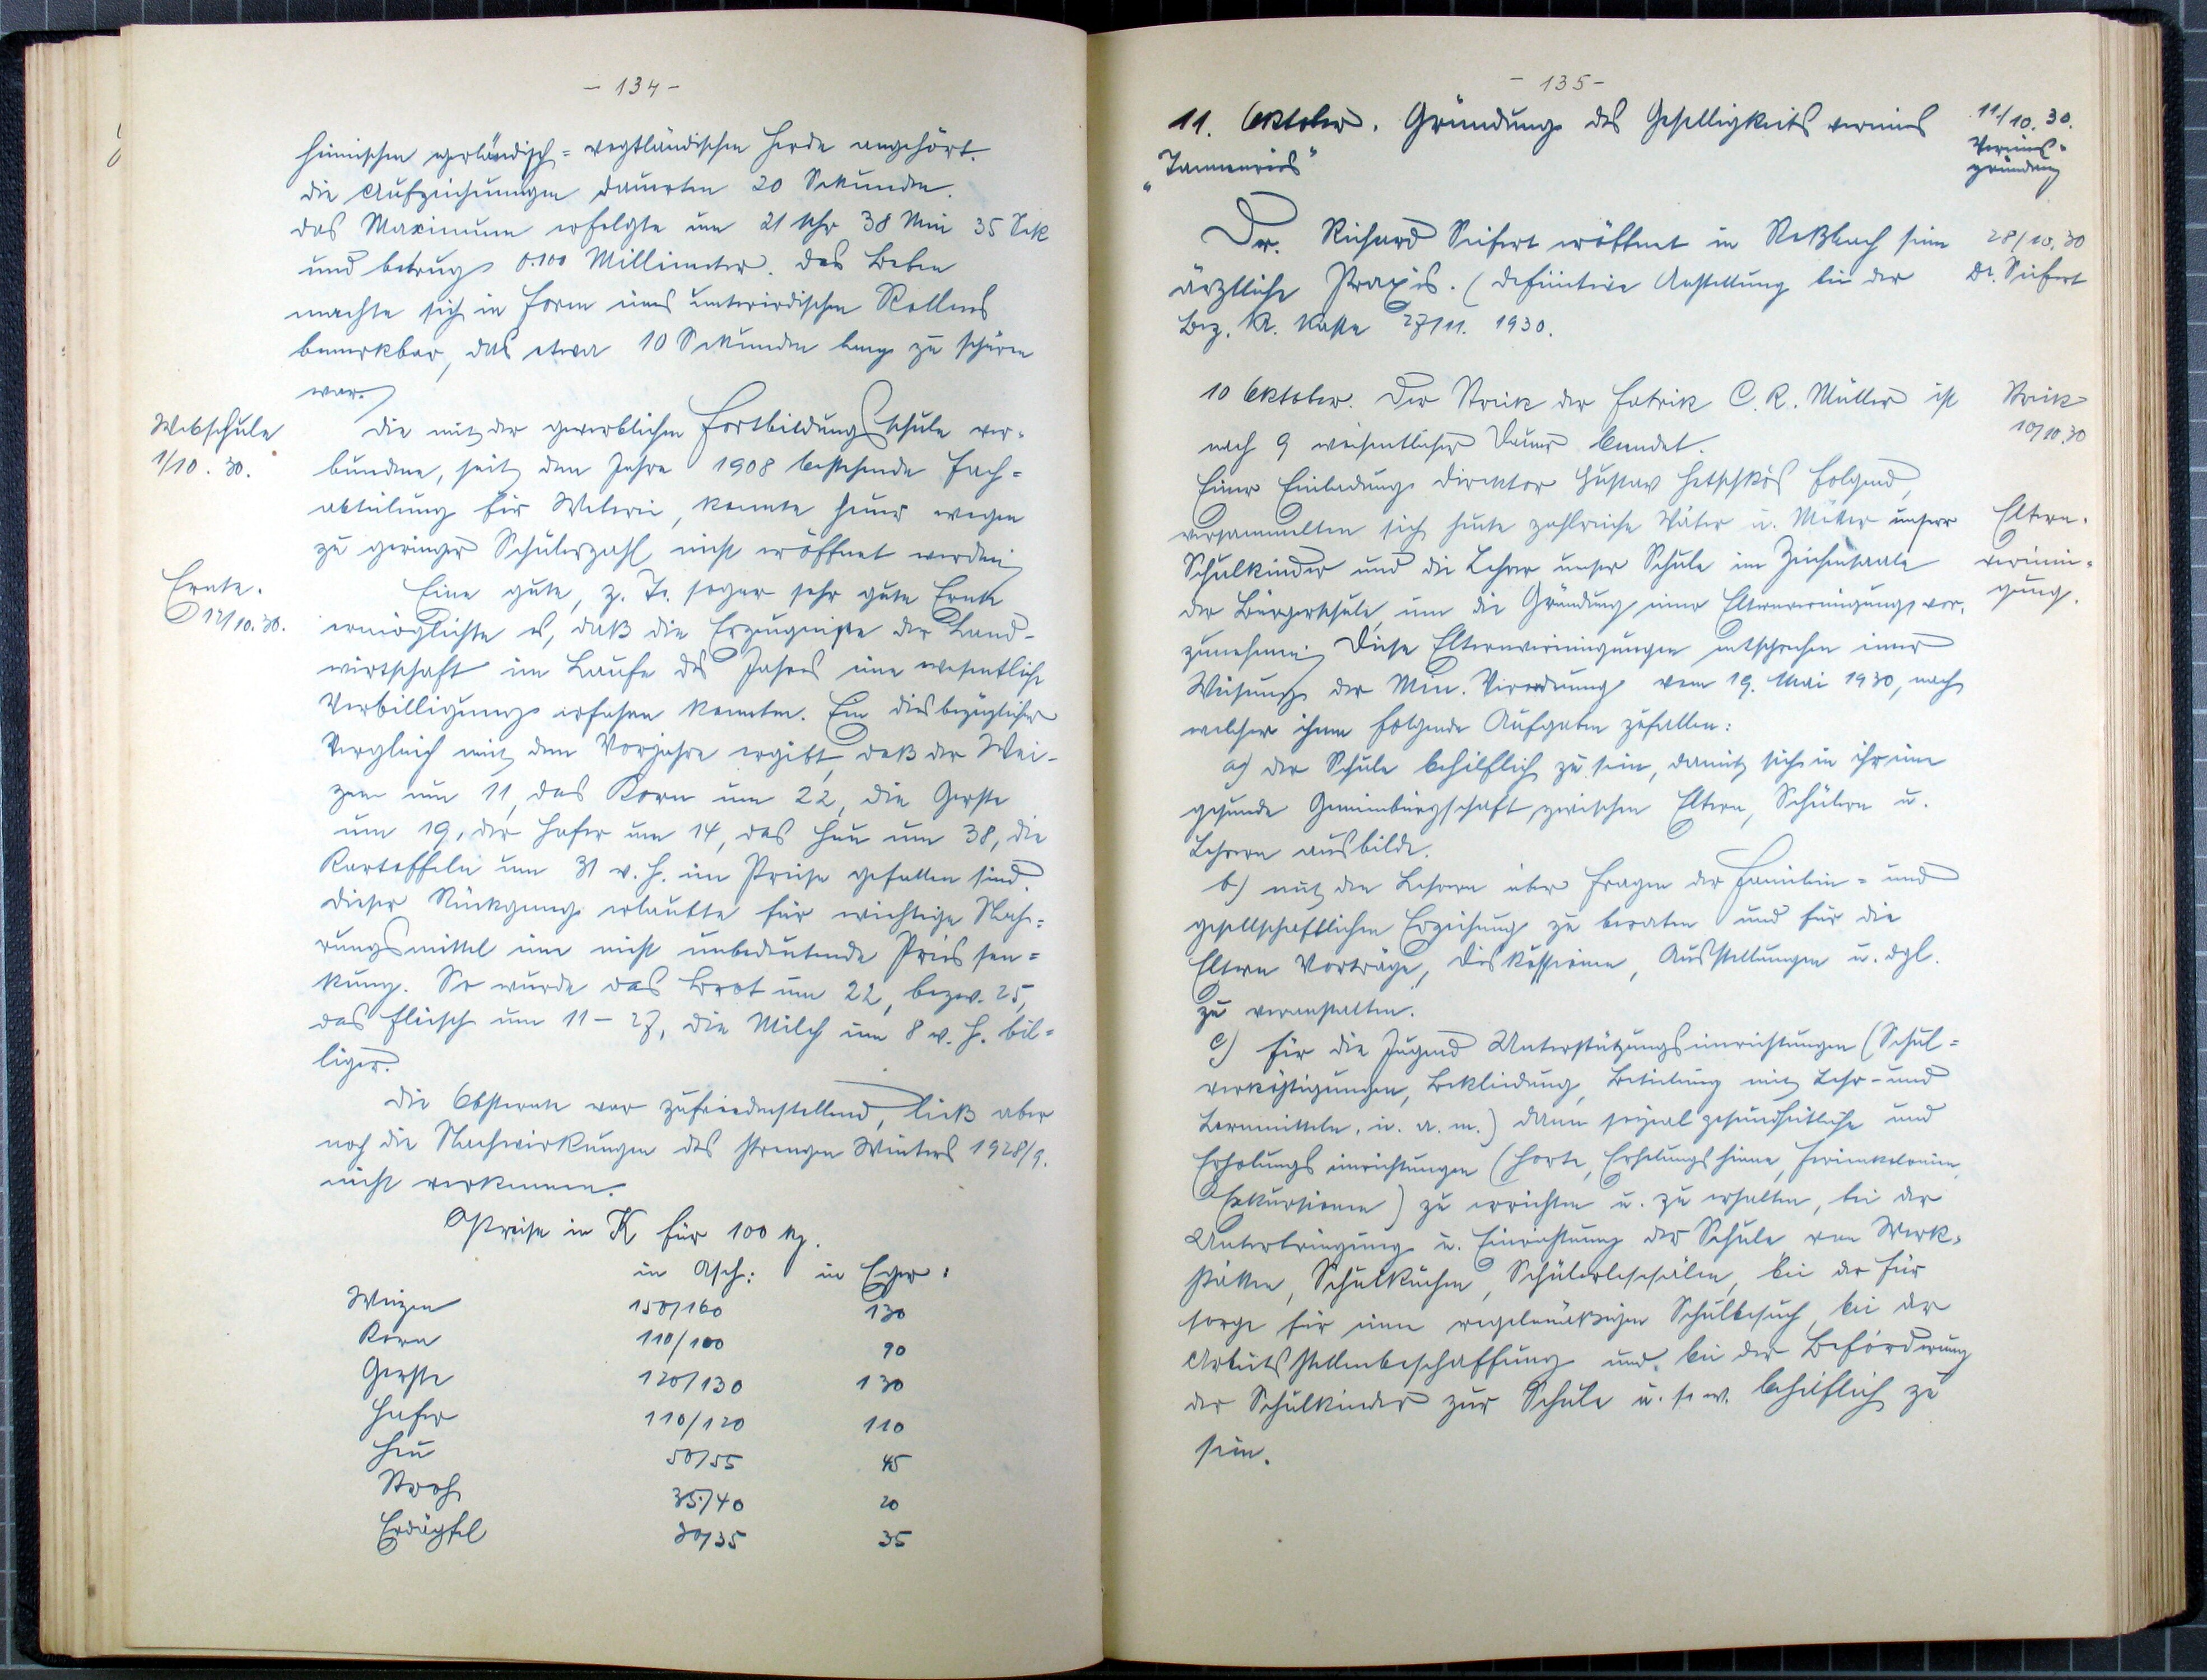 - 134 -
heimischen egerländisch-vogtländischen Herde angehört.
Die Aufzeichnungen dauerten 20 Sekunden.
Das Maximum erfolgte um 21 Uhr 38 Min 35 Sek
und betrug 0.100 Millimeter. Das Beben
machte sich in Form eines unterirdischen Rollens
bemerkbar, das etwa 10 Sekunden lang zu spüren
war.
Webschule
1/10. 30.
Die mit der gewerblichen Fortbildungsschule ver-
bundene, seit dem Jahre 1908 bestehende Fach-
abteilung für Weberei, konnte heuer wegen
zu geringer Schülerzahl nicht eröffnet werden.
Ernte.
12/10. 30.
Eine gute, z. T. sogar sehr gute Ernte
ermöglichte es, daß die Erzeugnisse der Land-
wirtschaft im Laufe des Jahres eine wesentliche
Verbilligung erfahren konnten. Ein diesbezüglicher
Vergleich mit dem Vorjahre ergibt, daß der Wei-
zen um 11, das Korn um 22, die Gerste
um 19, der Hafer um 14, das Heu um 38, die
Kartoffeln um 31 v. H. im Preise gefallen sind.
Dieser Rückgang erlaubte für wichtige Nah-
rungsmittel eine nicht unbedeutende Preissen-
kung. So wurde das Brot um 22, bezw. 25,
das Fleisch um 11 - 27, die Milch um 8 v. H. bil-
liger.
Die Obsternte war zufriedenstellend, ließ aber
noch die Nachwirkungen des strengen Winters 1928/9.
nicht verkennen.
Preise in K für 100 kg.
in Asch: in Eger:
Weizen 150/160 130
Korn 110/100 90
Gerste 120/130 130
Hafer 110/120 110
Heu 50/55 45
Stroh 35/40 20
Erdäpfel 30/35 35
- 135 -
11. Oktober. Gründung des Geselligkeitsvereines
"Tannenreis"
11/10. 30.
Vereins-
gründung
Dr. Richard Seifert eröffnet in Roßbach seine
ärztliche Praxis. (Definitive Anstellung bei der
Bez. Kr. Kasse 27/11. 1930.
28/10. 30
Dr. Seifert
10 Oktober. Der Streik der Fabrik C. R. Müller ist
nach 9 wöchentlicher Dauer beendet.
Streik
10/10. 30
Einer Einladung Direktor Gustav Hetschkos folgend,
versammelten sich heute zahlreiche Väter u. Mütter unserer
Schulkinder und die Lehrer unser Schule im Zeichensaale
der Bürgerschule, um die Gründung einer Elternvereinigung vor-
zunehmen. Diese Elternvereinigungen entsprechen einer
Weisung der Min. Verordnung vom 19. Mai 1930, nach
welcher ihnen folgende Aufgaben zufallen:
Eltern-
vereini-
gung.
a) der Schule behilflich zu sein, damit sich in ihr eine
gesunde Gemeinbürgschaft zwischen Eltern, Schülern u.
Lehrern ausbilde.
b) mit den Lehrern über Fragen der Familien- und
gesellschaftlichen Erziehung zu beraten und für die
Eltern Vorträge, Diskussionen, Ausstellungen u. dgl.
zu veranstalten.
c) für die Jugend Unterstützungseinrichtungen (Schul-
verköstigungen, Bekleidung, Beteilung mit Lehr- und
Lernmitteln, u. a. m.) dann sozialgesundheitliche und
Erholungseinrichtungen (Horte, Erholungsheime, Ferienkolonien,
Exkursionen) zu errichten u. zu erhalten, bei der
Unterbringung u. Einrichtung der Schule von Werk-
stätten, Schulküchen, Schülerlesesälen, bei der Für
sorge für einen regelmäßigen Schulbesuch, bei der
Arbeitsstellenbeschaffung und bei der Beförderung
der Schulkinder zur Schule u. s. w. behilflich zu
sein.